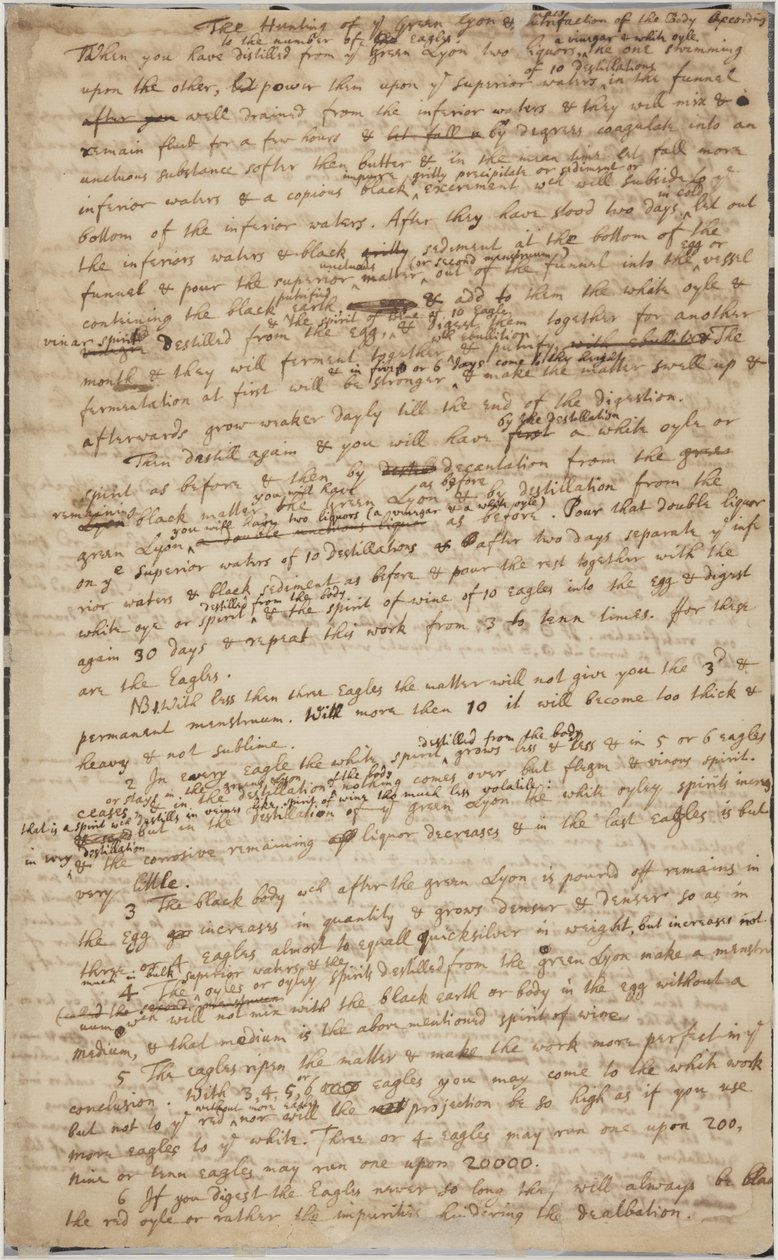 The Hunting of yᵉ Green Lyon & of the Body according
to the number of eagles.
When you have distilled from yᵉ green Lyon two liquors, a vinegar & white oyle the one swimming
upon the other, power them upon yᵉ superior waters of 10 destillations in the funnel
after you well drained from the inferior waters & they will mix &
remain fluid for a few hours & let fall by degrees coagulate into an
unctuous substance softer then butter & in the mean time let fall more
inferior waters & a copious black impure gritty precipitate or sediment or excrement wᶜʰ will subside to yᵉ
bottom of the inferior waters. After they have stood two days in cold, let out
the inferiors waters & black gritty sediment at the bottom of the
funnel & pour the superior unctuous matter (or second menstruum) out of the funnel into the egg or vessel
conteining the black putrified earth & add to them the white oyle &
vinous spirit destilled from the egg, & the spirit of wine of 10 Eagles & digest them together for another
month & they will ferment together wᵗʰ ebullition & putrefy with ebullition The
fermentation at first will be stronger & in five or 6 days come to the height & make the matter swell up &
afterwards grow weaker dayly till the end of the digestion.
Then destill again & you will have by the destillation first a white oyle or
spirit as before & then by decantation from the
remaining black matter you will have the green Lyon as before & by destillation from the
green Lyon you will have two liquors (a vinegar & a white oyle) a double unctuous liquor as before. Pour that double liquor
on yᵉ superior waters of 10 Destillations & after two days separate yᵉ infe
rior waters & black sediment as before & pour the rest together with the
white oye or spirit destilled from the body & the spirit of wine of 10 eagles into the egg & digest
again 30 days & repeat this work from 3 to tenn times. ffor these
are the Eagles.
NB 1. With less then three Eagles the matter will not give you the 3ᵈ &
permanent menstruum. With more then 10 it will become too thick &
heavy & not sublime.
2 In every Eagle the white spirit destilled from the body grows less & less & in 5 or 6 eagles
ceases or stays in the green Lyon & in the destillation of the body nothing comes over but flegm & vinous spirit.
that is a spirit wᶜʰ destills in veines like spirit of wine tho much less volatile:
but in the destillation of yᵉ green Lyon the white oyley spirits increas
in every destillation & the corrosive remaining liquor decreases & in the last eagles is but
very little.
3 The black body wᶜʰ after the green Lyon is pourd off remains in
the Egg increases in quantity & grows denser & denser so as in
three or 4 eagles almost to equall quicksilver in weight, but increases not
much in bulk
4 The superior waters & the oyles or oyley spirits destilled from the green Lyon make a menstru
(and the second menstruum
uum wᶜʰ will not mix with the black earth or body in the egg without a
medium, & that medium is the above mentioned spirit of wine
5 The eagles ripen the matter & make the work more perfect in yᵉ
conclusion. With 3, 4, 5, or 6 eagles you may come to the white work
but not to yᵉ red without more eagles, nor will the projection be so high as if you use
more eagles to yᵉ white. Three or 4 eagles may run one upon 200,
Nine or tenn eagles may run one upon 20000.
6 If you digest the Eagles never so long they will always be blac
the red oyle or rather the impurities hindering the dealbation.